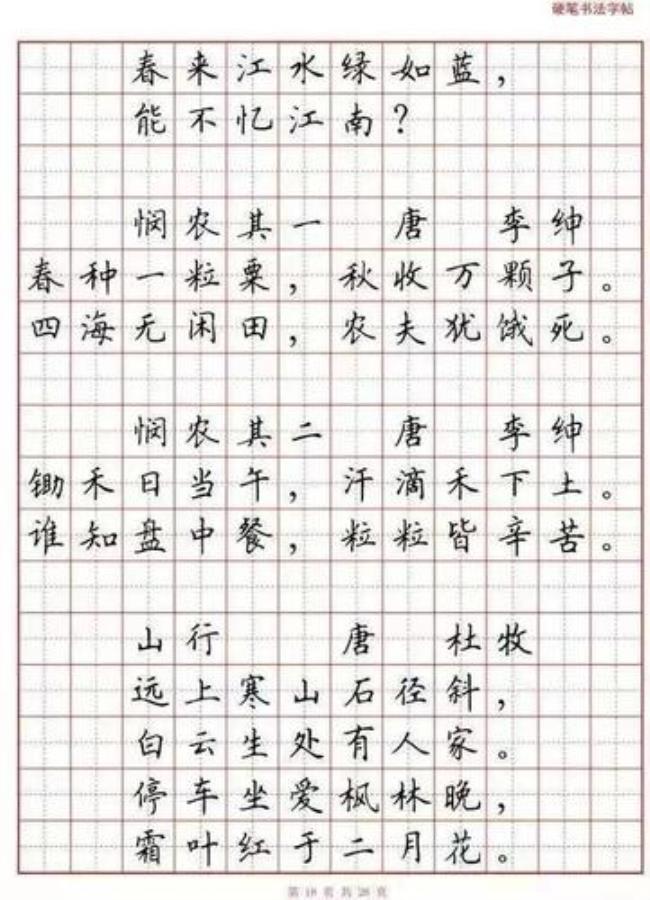 硬笔书法字帖
春来江水绿如蓝，
能不忆江南？
悯农其一 唐 李绅
春种一粒粟，秋收万颗子。
四海无闲田，农夫犹饿死。
悯农其二 唐 李绅
锄禾日当午，汗滴禾下土。
谁知盘中餐，粒粒皆辛苦。
山行 唐 杜牧
远上寒山石径斜，
白云生处有人家。
停车坐爱枫林晚，
霜叶红于二月花。
第 18 页 共 28 页